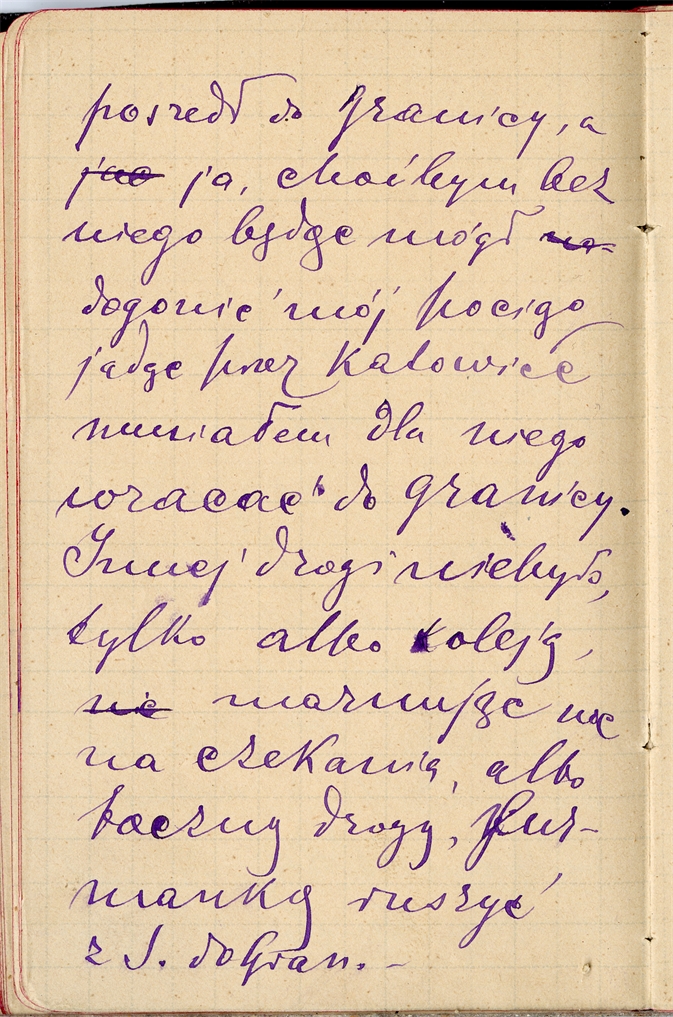 poszedł do Granicy, a
jao ja, choćbym bez
niego będąc mógł na-
dogonić mój pociąg
jadąc przez Katowice
musiałem dla niego
wracać do Granicy.
Innej drogi niebyło,
tylko albo koleją,
nie marnując noc
na czekania, albo
boczną drogą, fur-
manką ruszyć
z S. do Gran. -